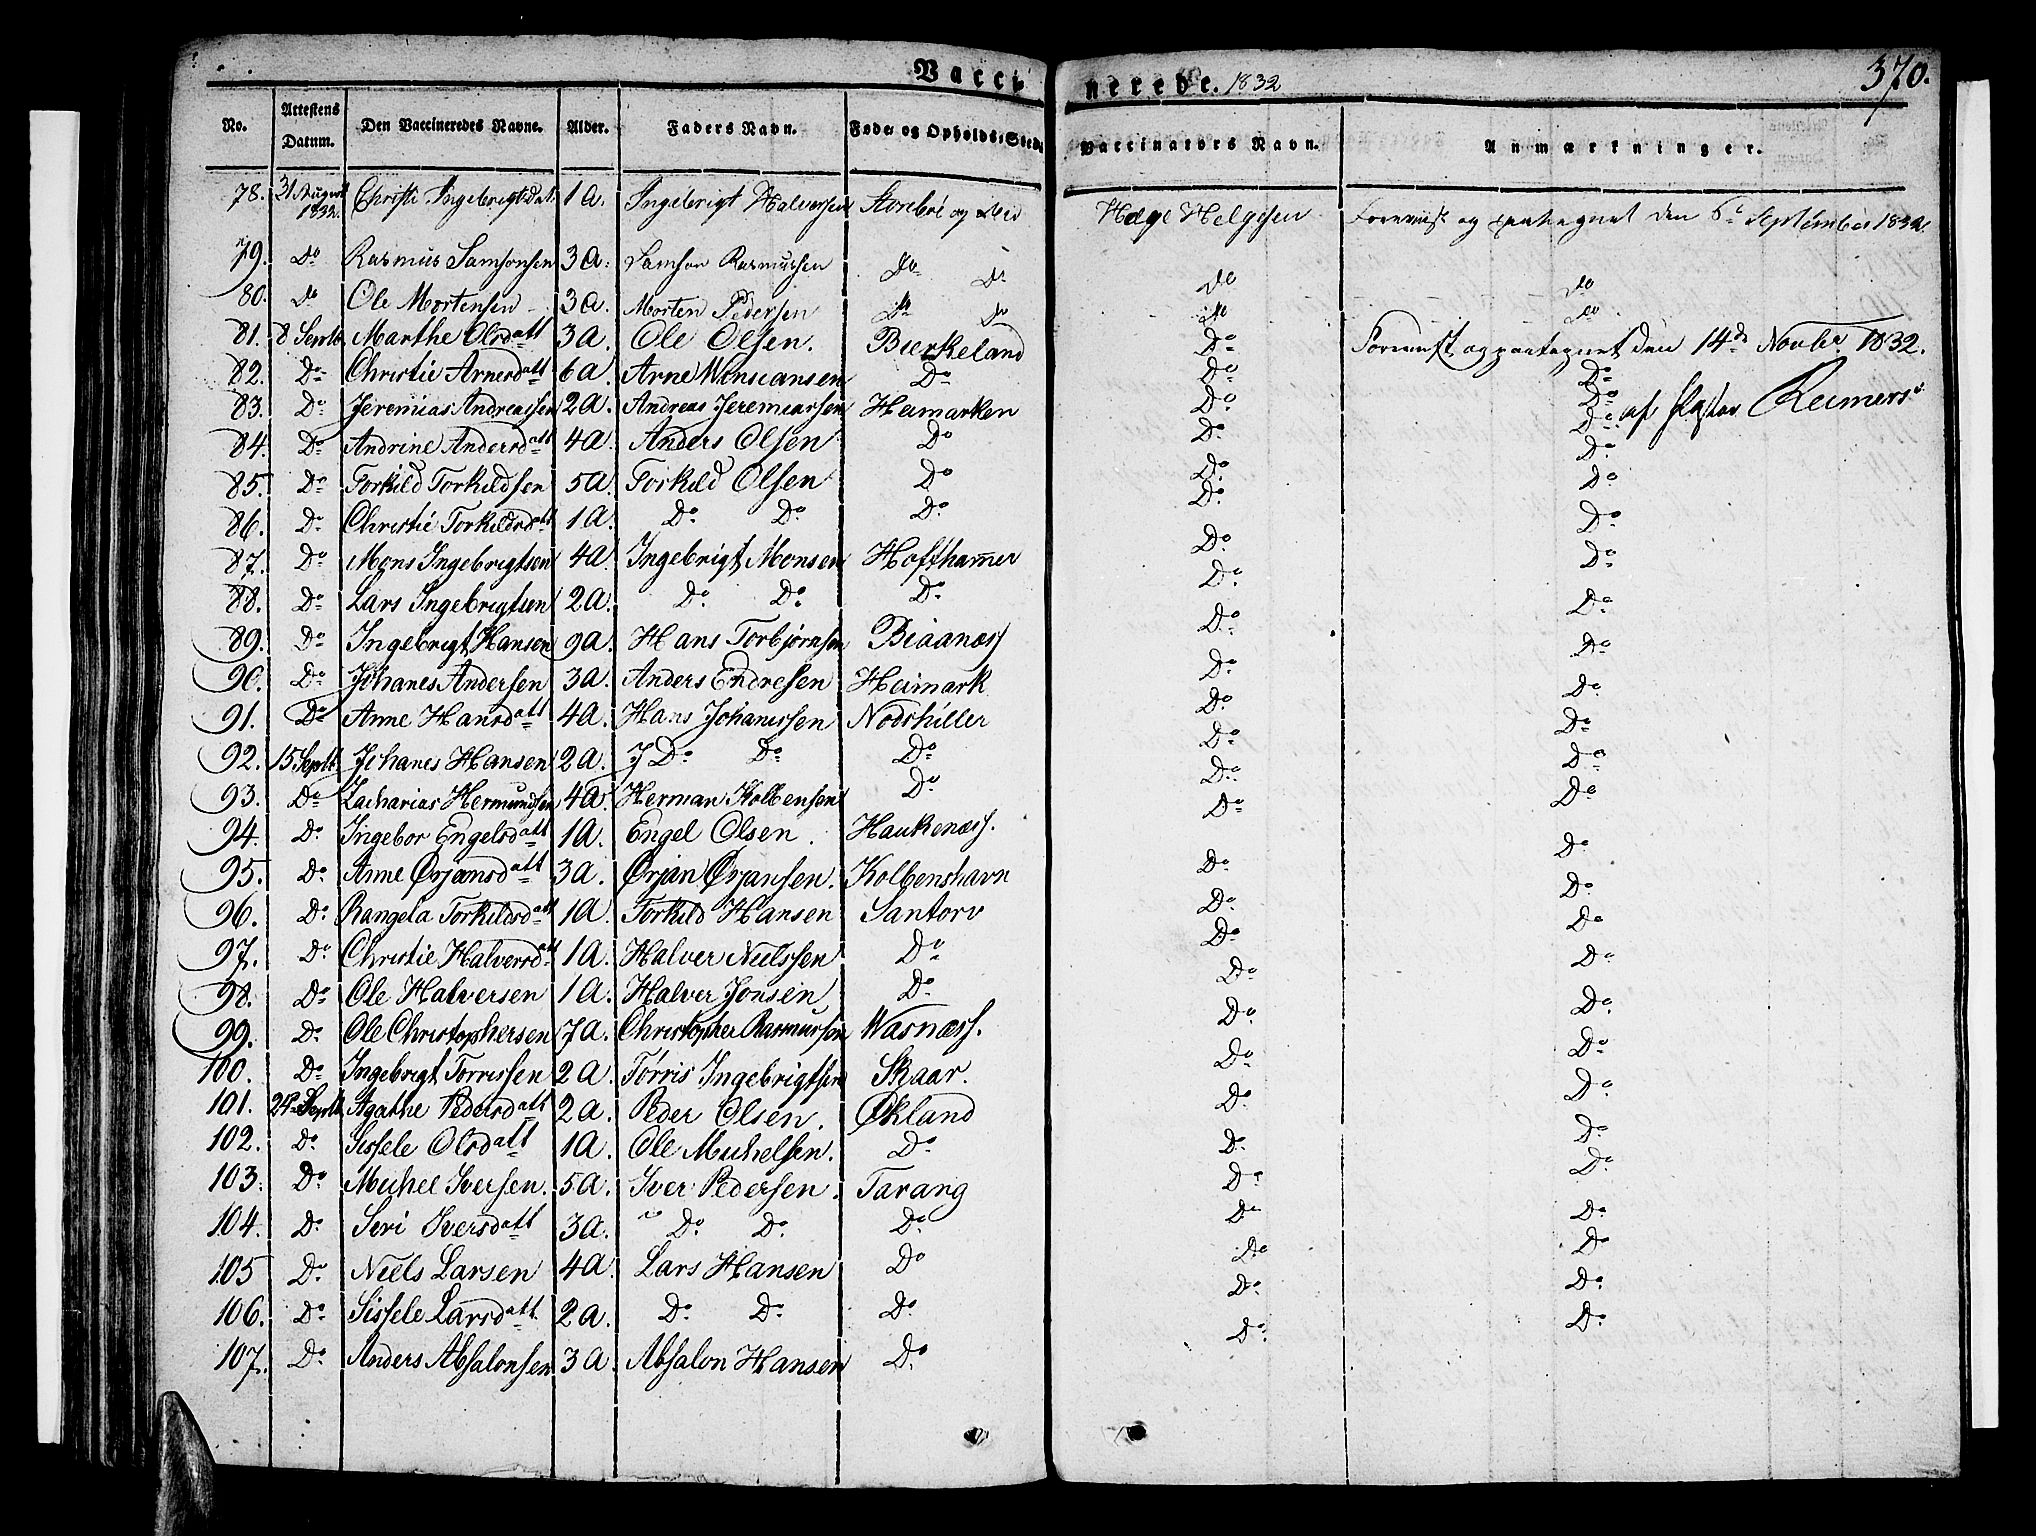 Vaccinerede. 1832 370.
No. Attestens Datum. Den Vaccineredes Navne. Alder. Faders Navn. Føde- og Opholds-Sted. Vaccinators Navn. Anmærkninger.
78. 31 August 1832. Christi Ingebrigtsdat. 1 a. Ingebrigt Halversen Storebøe og Helge Helgesen Foreviist og paategnet den 6te September 1832.
79. Do Rasmus Samsonsen 3 a. Samson Rasmussen Do Do Do Do
80. Do Ole Mortensen 3 a. Morten Pedersen Do Do Do Do
81. 8 Septb. Marthe Olsdatt 3 a. Ole Olsen. Bierkeland Do Foreviist og paategnet den 14de Novbr 1832.
82. Do Christie Arnesdatt 6 a. Arne Do Do Do
83. Do Jeremias Andreassen 2 a. Andreas Jeremiassen Heimarken Do Do af Pastor Reimers
84. Do Andrine Andersdatt 4 a. Anders Olsen Do Do Do
85. Do Torkild Torkildsen 5 a. Torkild Olsen Do Do Do
86. Do Christie Torkildsdatt 1 a. Do Do Do Do Do
87. Do Mons Ingebrigtsen 4 a. Ingebrigt Monsen Hofthamer Do Do
88. Do Lars Ingebrigtsen 2 a. Do Do Do Do Do
89. Do Ingebrigt Hansen 9 a. Hans Torbjørnsen Biaanæss Do Do
90. Do Johanes Andersen 3 a. Anders Endresen Heimark Do Do
91. Do Anne Hansdatt 4 a. Hans Johanessen Nodshiller Do Do
92. 15 Septb. Johanes Hansen 2 a. Do Do Do Do Do
93. Do Zacharias Hermundsen 4 a. Herman Kolbensen Do Do Do
94. Do Ingebor Engelsdatt 1 a. Engel Olsen. Haukenæss. Do Do
95. Do Anne Ørjansdatt 3 a. Ørjan Ørjansen. Kolbenshavn Do Do
96. Do Rangela Torkildsdatt 1 a. Torkild Hansen Santorv Do Do
97. Do Christie Halversdatt 1 a. Halver Nielssen Do Do Do
98. Do Ole Halversen 1 a. Halver Jonsen Do Do Do
99. Do Ole Christophersen 7 a. Christopher Rasmussen Wasnæss. Do Do
100. Do Ingebrigt Torrissen 2 a. Tørris Ingebrigtsen Skaar. Do Do
101. Septb. Agathe Pedersdatt 2 a. Peder Olsen. Økland Do Do
102. Do Sissele Olsdatt 1 a. Ole Michelsen. Do Do Do
103. Do Michel Iversen. 5 a. Iver Pedersen. Tarang Do Do
104. Do Seri Iversdatt 3 a. Do Do Do Do Do
105 Do Niels Larsen 4 a. Lars Hansen Do Do Do
106. Do Sissele Larsdatt. 2 a. Do Do Do Do Do
107. Do Anders Absalonsen 3 a. Absalon Hansen Do Do